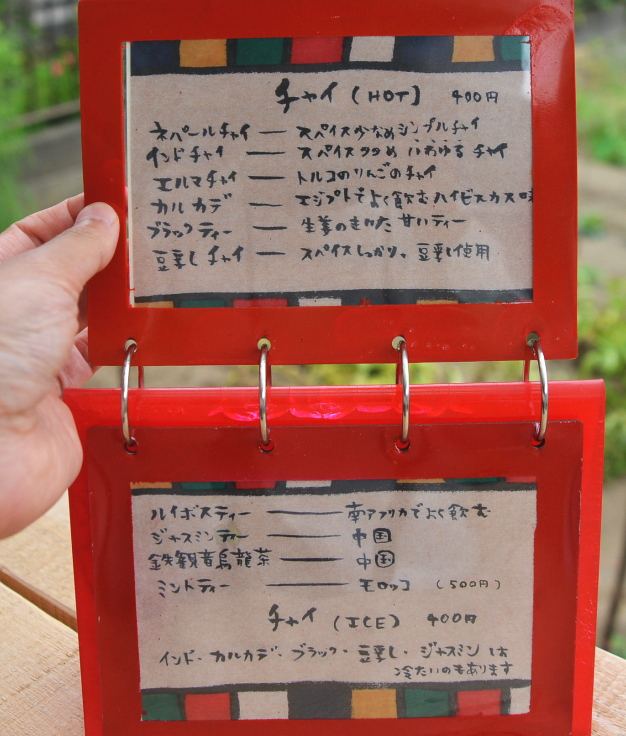 チャイ (HOT) 400円
ネパールチャイ ― スパイス少なめシンプルチャイ
インドチャイ ― スパイス多め いわゆる チャイ
エルマチャイ ― トルコのりんごのチャイ
カルカデ ― エジプトでよく飲むハイビスカス味
ブラックティー ― 生姜のきいた 甘いティー
豆乳しチャイ ― スパイスしっかり。豆乳し使用
ルイボスティー ― 南アフリカでよく飲む
ジャスミンティー ― 中国
鉄観音烏龍茶 ― 中国
ミントティー ― モロッコ (500円)
チャイ (ICE) 400円
インド・カルカデ・ブラック・豆乳し・ジャスミン は
冷たいのもあります